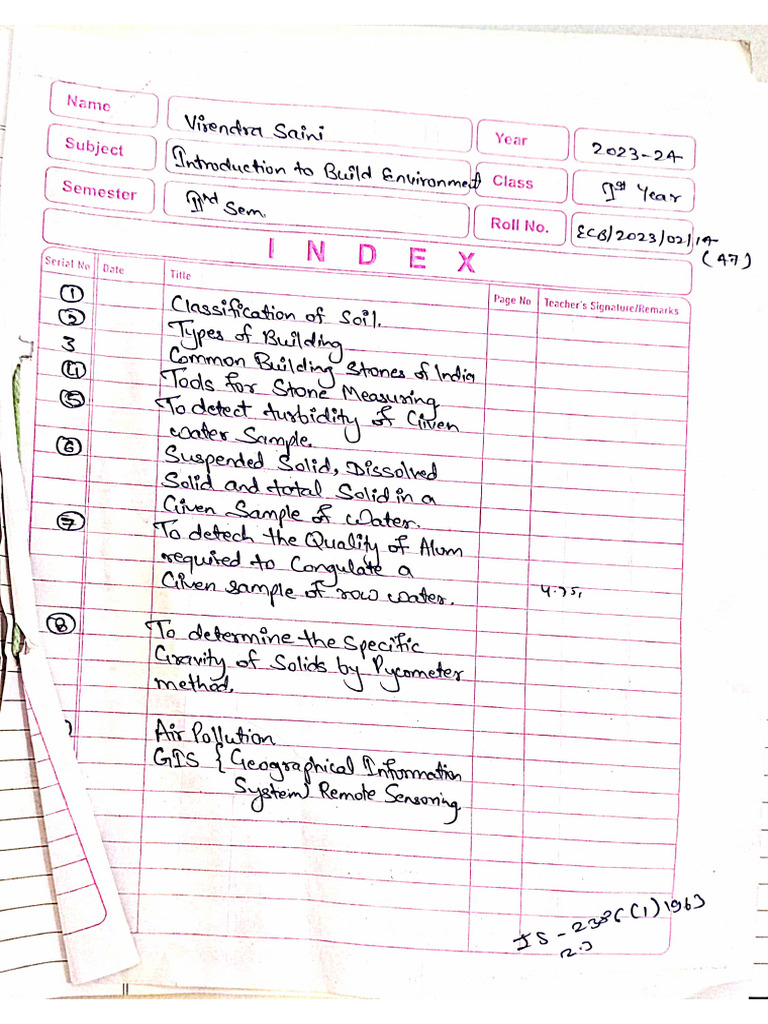 Name Virendra Saini Year 2023-24
Subject Introduction to Build Environment Class Ist Year
Semester IInd Sem. Roll No. ECB/2023/02/14
(47)
INDEX
Serial No Date Title Page No Teacher's Signature/Remarks
1 Classification of Soil.
2 Types of Building
3 Common Building Stones of India
4 Tools for Stone Measuring
5 To detect turbidity of Given
water Sample.
6 Suspended Solid, Dissolved
Solid and total Solid in a
Given Sample of Water.
7 To detech the Quality of Alum
required to Congulate a
Given sample of row water.
8 To determine the Specific
Gravity of Solids by Pycometer
method.
Air Pollution
GIS { Geographical Information
System} Remote Sensoring
IS - 2386(1) 1963